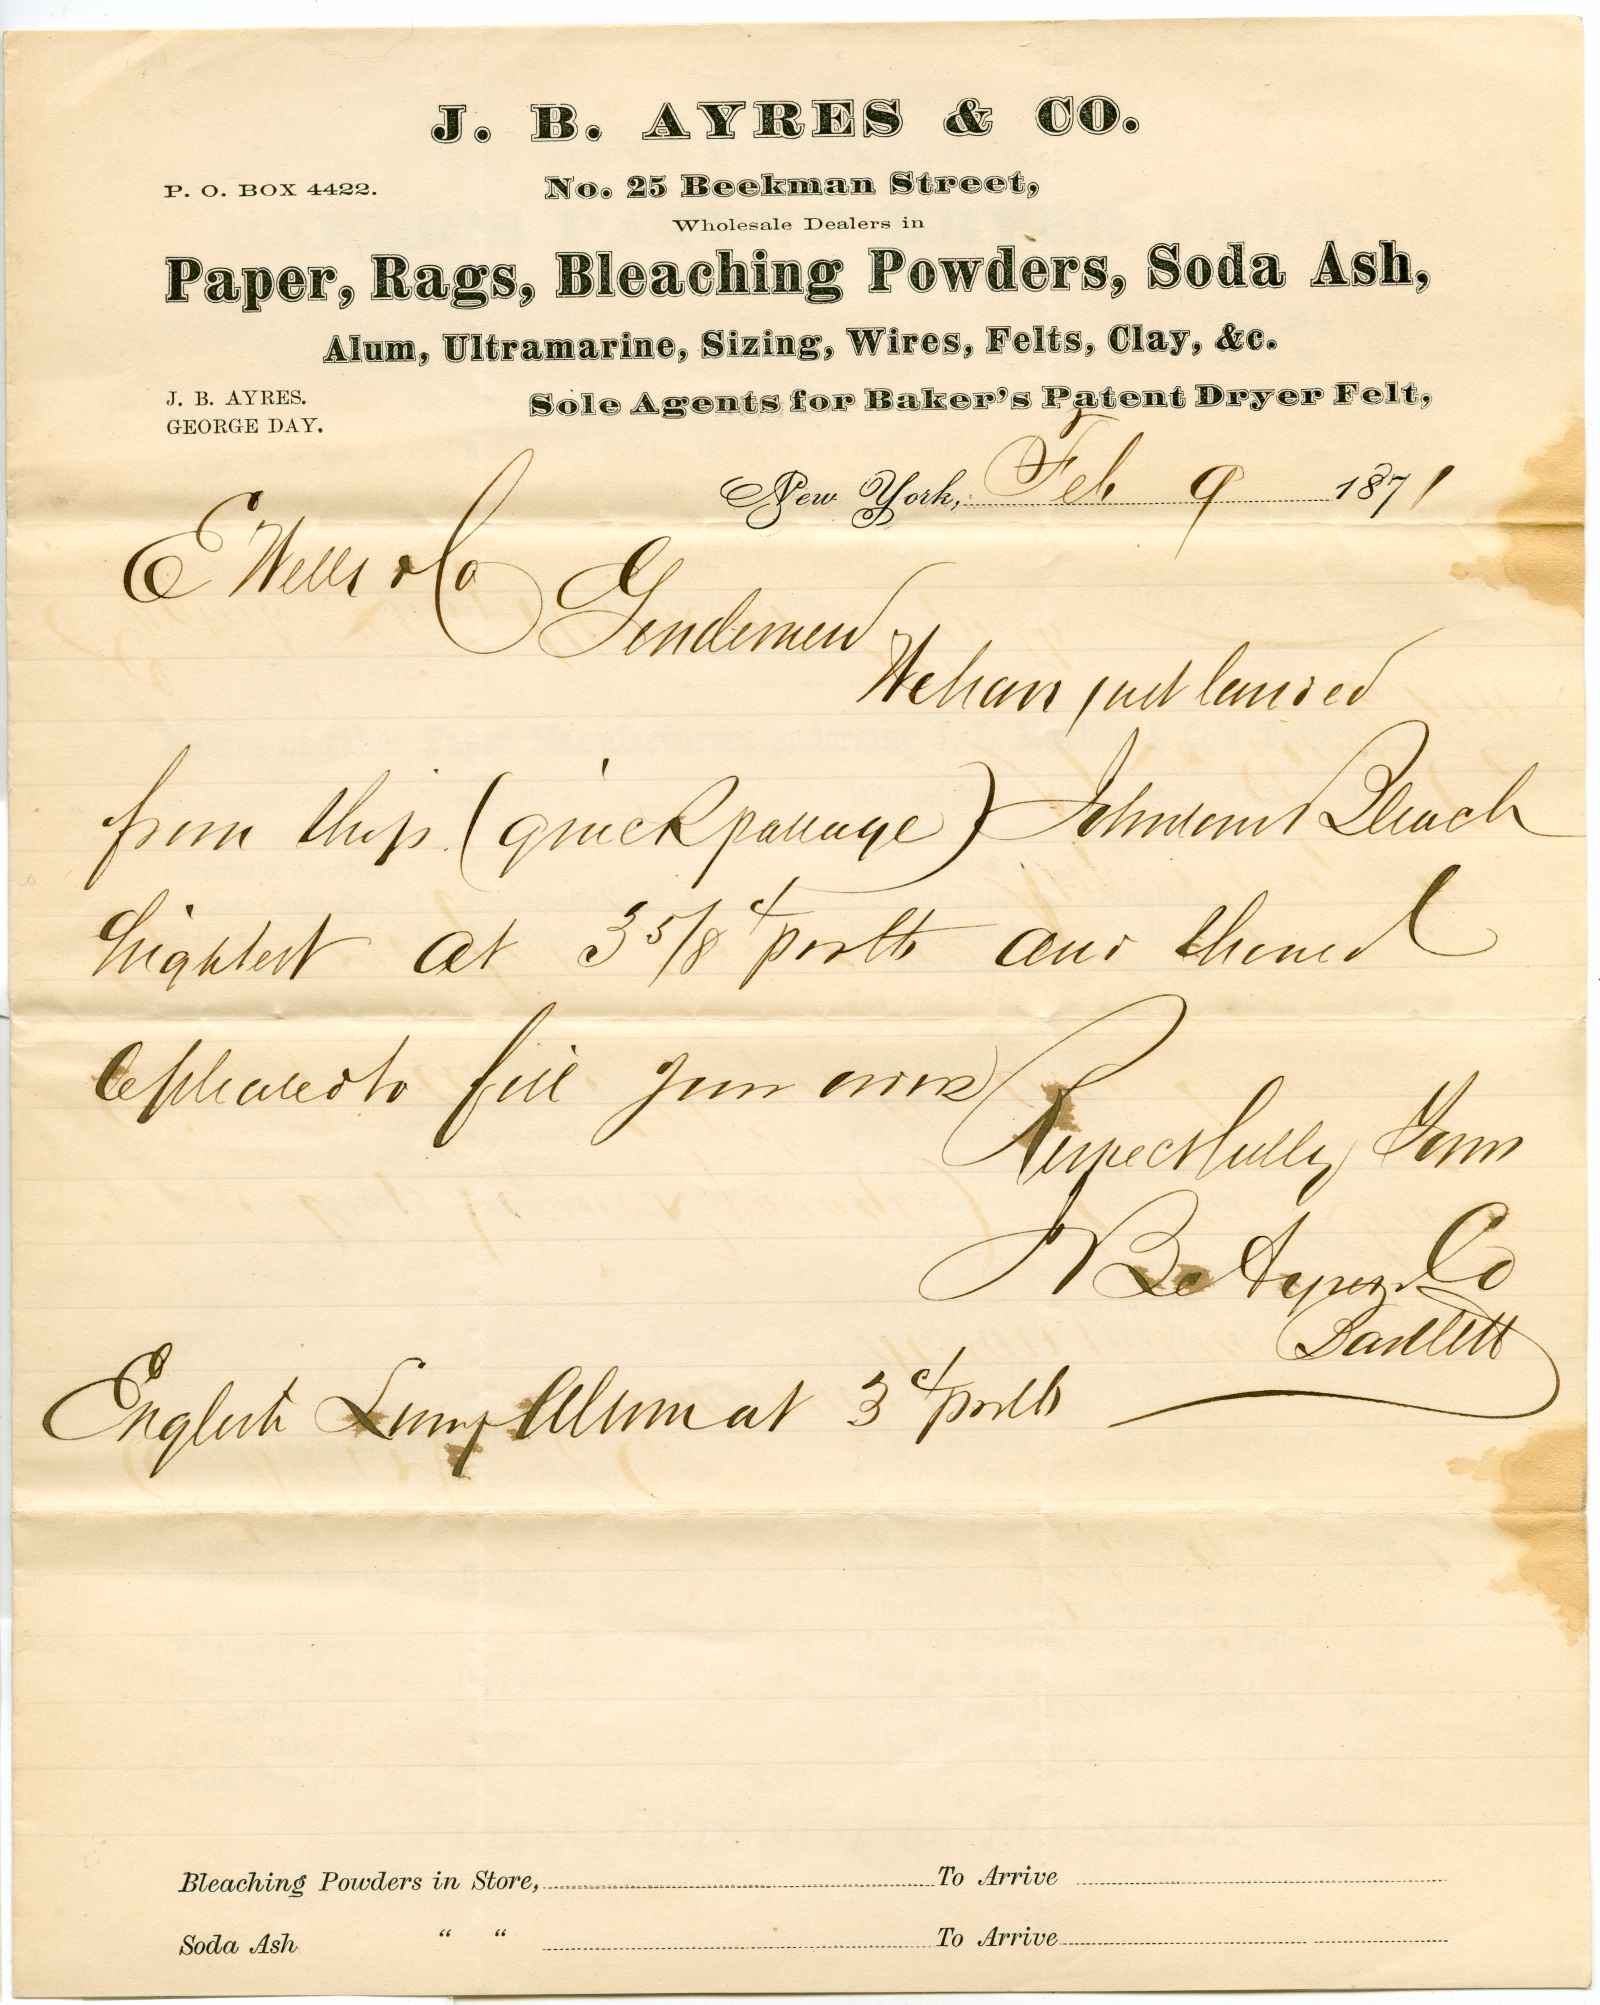 J. B. AYRES & CO.
P. O. BOX 4422.
No. 25 Beekman Street,
Wholesale Dealers in
Paper, Rags, Bleaching Powders, Soda Ash,
Alum, Ultramarine, Sizing, Wires, Felts, Clay, &c.
J. B. AYRES.
GEORGE DAY.
Sole Agents for Baker's Patent Dryer Felt,
New York, Feb 9 1871
E Wells & Co
Gentlemen
We have just landed
from ship (quick passage) Johnsons Bleach
highest at 3 5/8 ¢ pr lb and should
be pleased to fill your order
Respectfully Yours
J B Ayres & Co
Bartlett
English Lump Alum at 3 ¢ pr lb
Bleaching Powders in Store, To Arrive
Soda Ash " " To Arrive